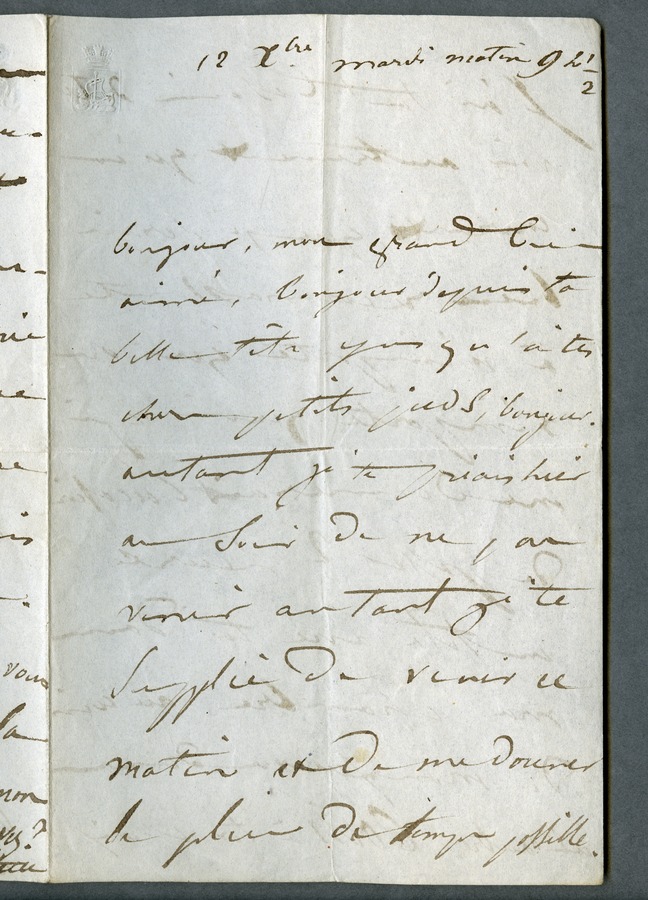 12 Xbre mardi matin 9 h ½
bonjour, mon grand bien
aimé, bonjour depuis ta
belle tête jusqu'à tes
chers petits pieds, bonjour.
autant je te priais hier
au soir de ne pas
venir autant je te
supplie de venir ce
matin et de me donner
le plus de temps possible.
vous
la
mon